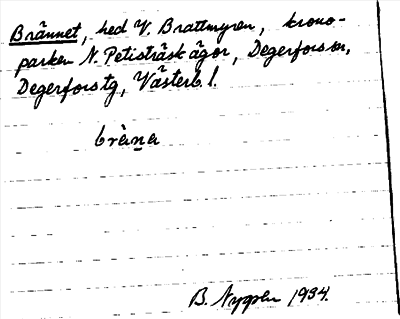 Brännet, hed V. Brattmyren, krono-
parken N. Petisträsk ägor, Degerfors sn,
Degerfors tg, Västerb. l.
bràna
B. Nygren 1934.